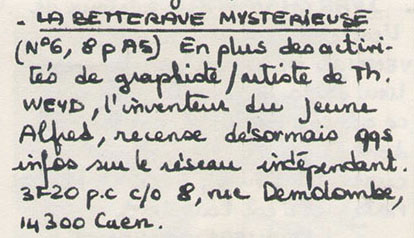 . LA BETTERAVE MYSTERIEUSE
(N°6, 8 p A5) En plus des activi-
tés de graphiste/artiste de Th.
WEYD, l'inventeur du jeune
Alfred, recense désormais qqs
infos sur le réseau indépendant.
3F20 p.c c/o 8, rue Demolombe,
14300 Caen.